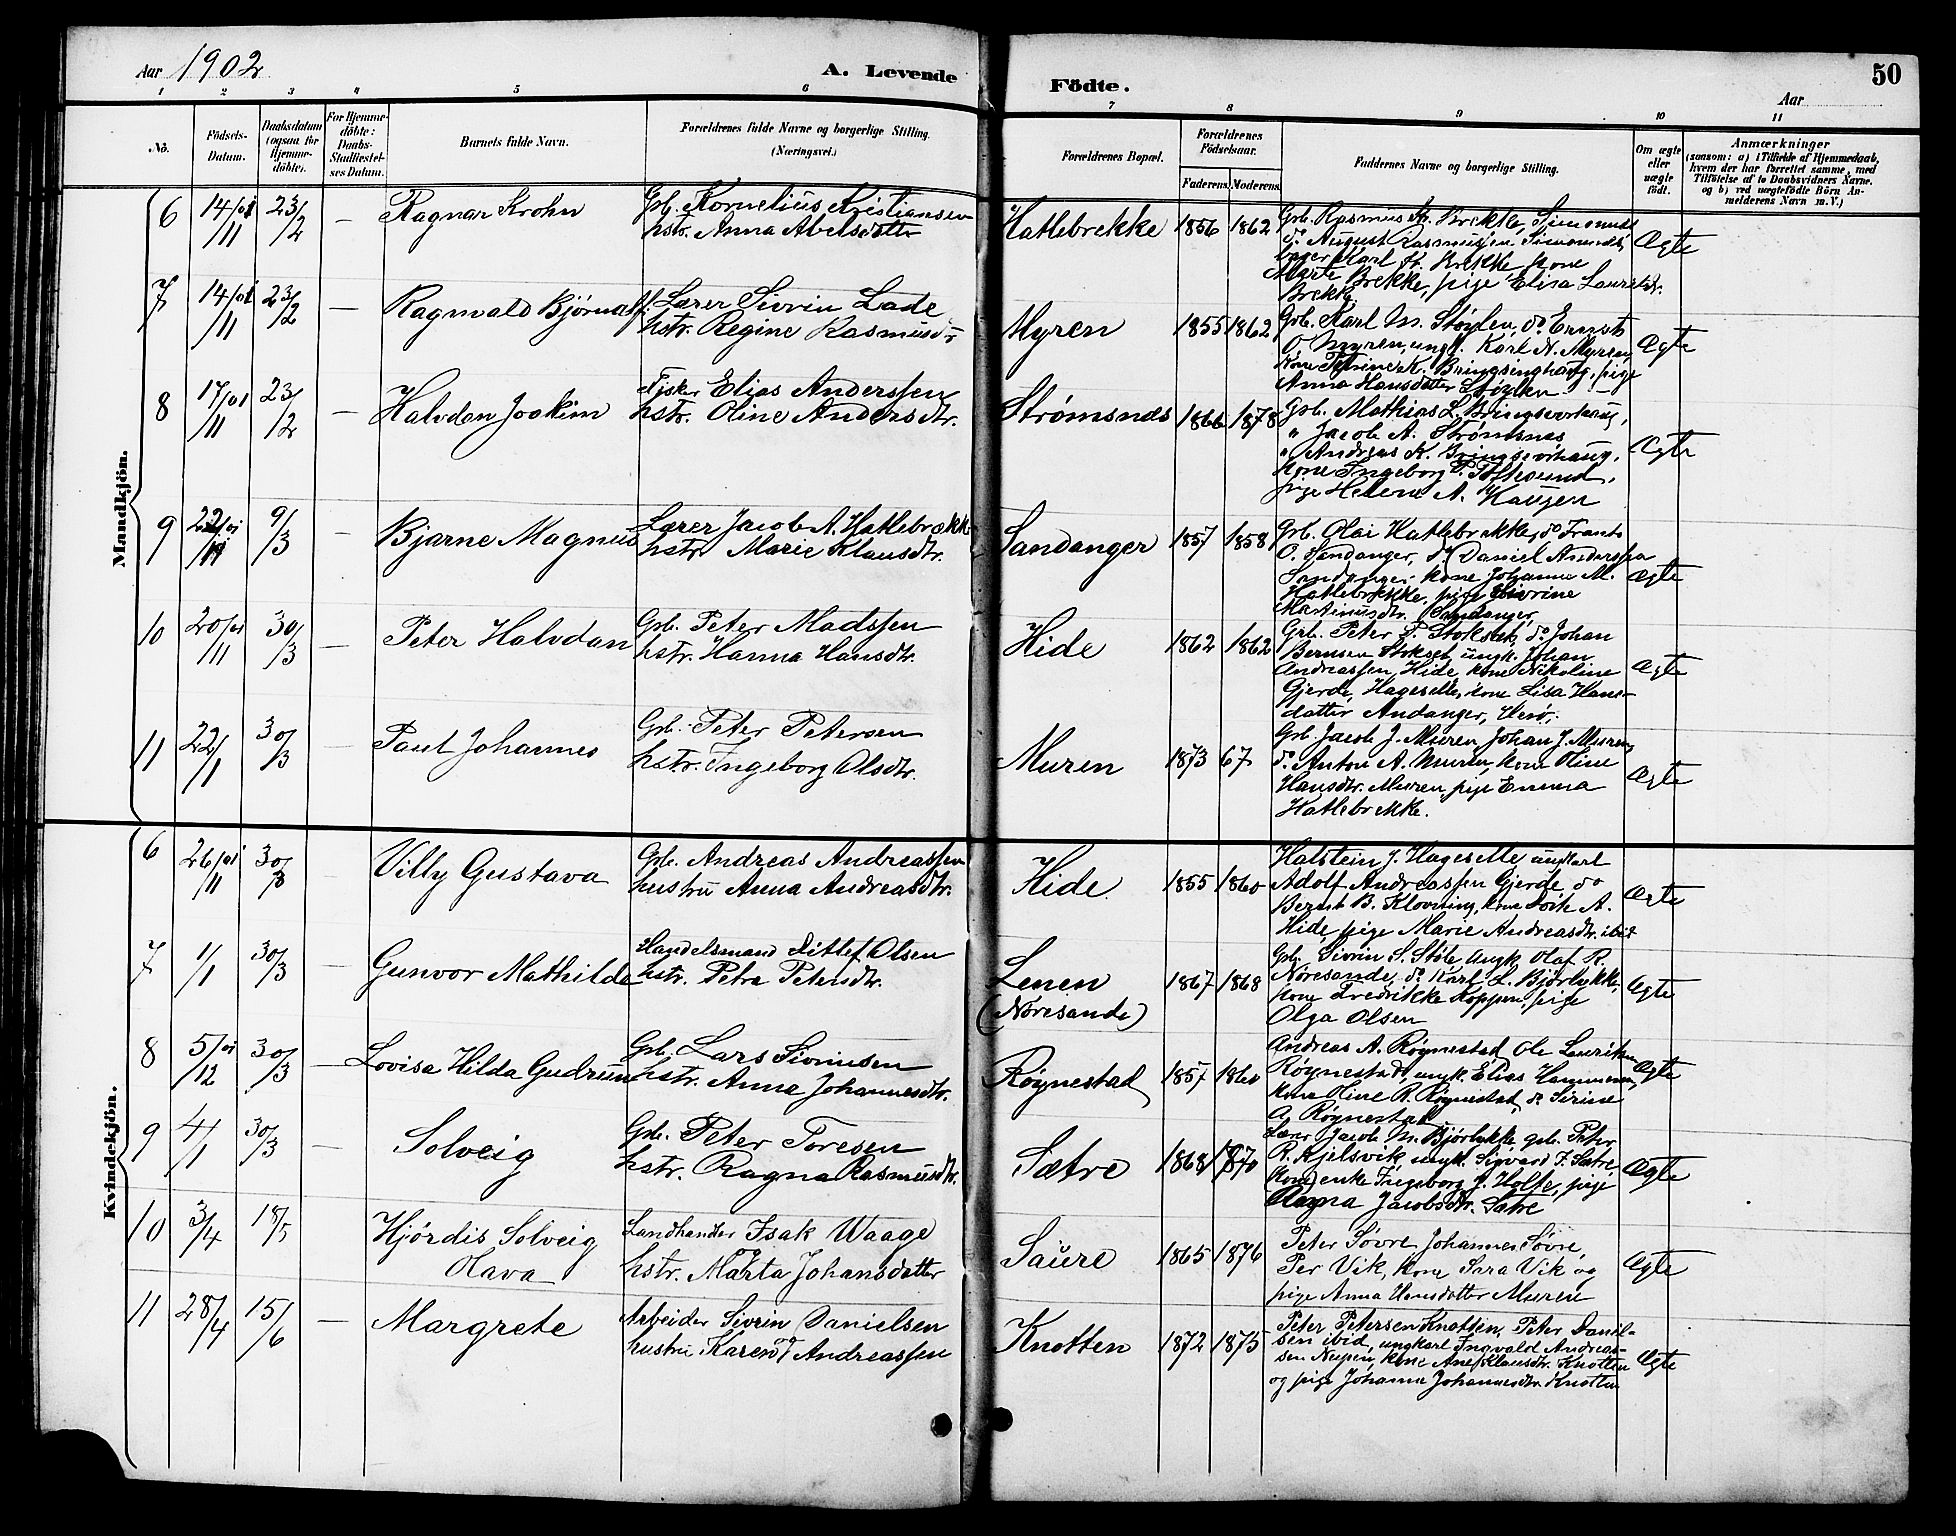 Aar 1902
A. Levende
Födte.
Aar
50
1 2 3 4 5 6 7 8 9 10 11
No.
Födsels-
Datum.
Daabsdatum
(ogsaa for
Hjemme-
döbte).
For Hjemme-
döbte:
Daabs-
Stadfæstel-
ses Datum.
Barnets fulde Navn.
Forældrenes fulde Navne og borgerlige Stilling.
(Næringsvei.)
Forældrenes Bopæl.
Forældrenes
Födselsaar.
Faderens. Moderens.
Faddernes Navne og borgerlige Stilling.
Om ægte
eller
uægte
födt.
Anmærkninger
(saasom: a) i Tilfælde af Hjemmedaab,
hvem der har forrettet samme, med
Tilföielse af to Daabsvidners Navne,
og b) ved uægtefödte Börn An-
melderens Navn m. V.)
Mandkjön.
6 14/11 01 23/2 — Ragnar Krohn
Gb. Kornelius Kristiansen
hstr. Anna Abelsdatter
Hatlebrekke 1856 1862
Gb. Rasmus K. Brekke, Simonnes
do August Rasmussen Simonnes,
Karl K. Brekke, kone
Marte Brekke, pige Elisa Laurits
Brekke.
Ægte
7 14/11 01 23/2 — Ragnvald Bjørnulf
Lærer Sivrin Lade
hstr. Regine Rasmusd.
Myren 1855 1862
Gb. Karl M. Støylen, do Ernst
O. Myren, ungk. Karl N. Myren,
kone K. Bringsinghaug, pige
Anna Hansdatter Støylen
Ægte
8 17/11 01 23/2 — Halvdan Joakim
Fisker Elias Anderssen
hstr. Oline Andersdtr.
Strømsnes 1866 1878
Gb. Mathias L. Bringsvorhaug,
" Jacob A. Strømsnes
" Andreas K. Bringsvorhaug,
kone Ingeborg P.
pige Helene A. Haugen
Ægte
9 22/11 01 9/3 — Bjarne Magnus
Lærer Jacob A. Hatlebrekke
hstr. Marie Klausdtr.
Sandanger 1857 1858
Gb. Olai Hatlebrekke, do Frants
O. Sandanger, do Daniel Anderssen
Sandanger, kone Johanne M.
Hatlebrekke, pige Sivrine
Martinusdtr. Sandanger,
Ægte
10 20/11 01 30/3 — Peter Halvdan
Gb. Peter Madssen
hstr. Hanna Hansdtr.
Hide 1862 1862
Gb. Peter P. Stokset, do Johan
Berntsen Stokset, ungk. Johan
Andreassen Hide, kone Nikoline
Gjerde, Hageselle, kone Lisa Hans-
datter Andanger, Herø.
Ægte
11 22/1 30/3 — Paul Johannes
Gb. Peter Petersen
hstr. Ingeborg Olsdtr.
Muren 1873 67
Gb. Jacob J. Muren, Johan J. Muren,
do Anton A. Muren, kone Oline
Hansdtr. Muren, pige Emma
Hatlebrekke.
Ægte
Kvindekjön.
6 26/11 01 30/3 — Villy Gustava
Gb. Andreas Andreassen
hustru Anna Andreasdtr.
Hide 1855 1860
Halstein J. Hageselle, ungkarl
Adolf Andreassen Gjerde, do
Bernt B. Klovning, kone A.
Hide, pige Marie Andreasdtr. ibid
Ægte
7 1/1 30/3 — Gunvor Mathilde
Handelsmand Ditlef Olsen
hstr. Petra Petersdtr.
Lenen
(Nøresande)
1867 1868
Gb. Sivrin S. Støle, ungk. Olaf R.
Nøresande, do Karl L. Bjørlykke,
kone Fredrikke Koppen, pige
Olga Olsen
Ægte
8 5/12 01 30/3 — Lovisa Hilda Gudrun
Gb. Lars Sivrinsen
hstr. Anna Johannesdtr.
Røynestad 1857 1860
Andreas A. Røynestad, Ole Lauritsen
Røynestad, ungk. Elias Hammeren,
kone Oline R. Røynestad, do Sirine
A. Røynestad
Ægte
9 4/1 30/3 — Solveig
Gb. Peter Toresen
hstr. Ragna Rasmusdtr.
Sætre 1868 1870
Lærer Jacob M. Bjørlykke, gb. Peter
R. Kjelsvik, ungk. Sigvard F. Sætre,
kone) enke Ingeborg J. Holse, pige
Anna Jacobsdtr. Sætre
Ægte
10 3/4 18/5 Hjørdis Solveig
Olava
Landhandler Isak Waage
hstr. Marta Johansdatter
Saure 1865 1876
Peter Søvre, Johannes Søvre,
Per Vik, kone Sara Vik og
pige Anna Hansdatter Muren
Ægte
11 28/4 15/6 — Margrete
Arbeider Sivrin Danielsen
hustru Karen Andreassen
Knotten 1872 1875
Peter Petersen Knotten, Peter Daniel-
sen ibid, ungkarl Ingvald Andreas-
sen Neppen, kone Ane Klausdtr. Knotten
og pige Johanne Johannesdtr. Knotten
Ægte